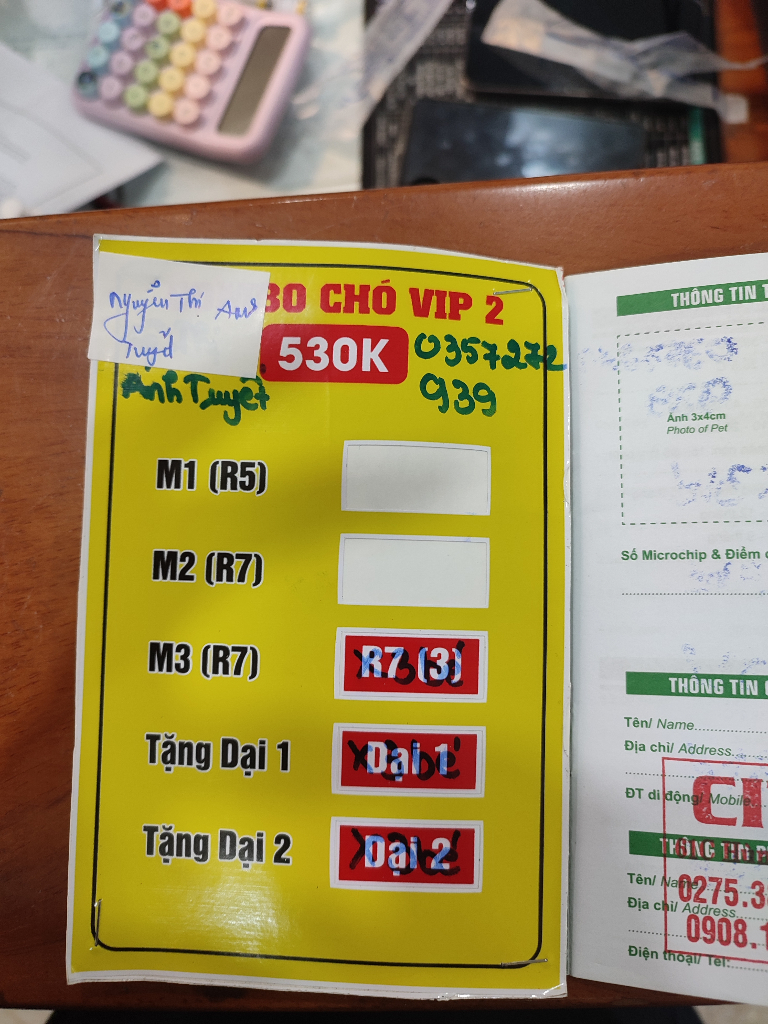 Nguyễn Thị Ánh
Tuyết
BO CHÓ VIP 2
530K
0357272
939
Anh Tuyết
M1 (R5)
M2 (R7)
M3 (R7)
R7 (3)
x 3 bé
Tặng Dại 1
Dại 1
x 3 bé
Tặng Dại 2
Dại 2
x 3 bé
THÔNG TIN
Ảnh 3x4cm
Photo of Pet
Số Microchip & Điểm
THÔNG TIN
Tên/ Name
Địa chỉ/ Address
ĐT di động/ Mobile
THÔNG TIN
Tên/ Name
Địa chỉ/ Address
Điện thoại/ Tel:
0275.3
0908.1